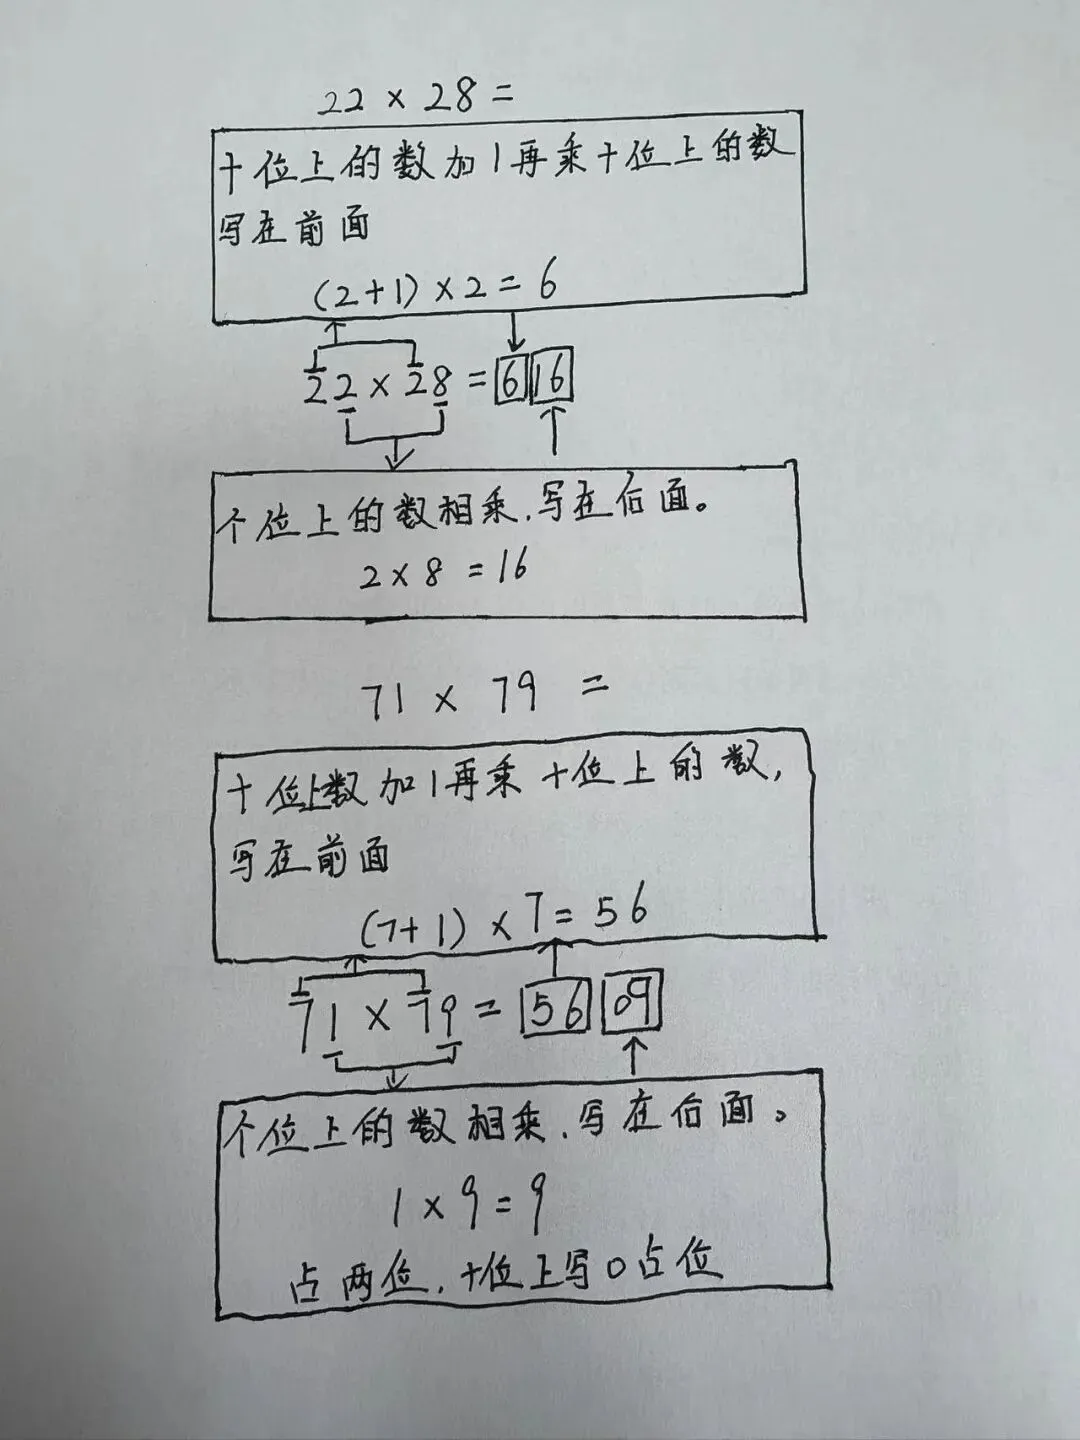 22 × 28 =
十位上的数加1再乘十位上的数
写在前面
(2+1)×2=6
22×28=616
个位上的数相乘.写在后面。
2×8=16
71 × 79 =
十位上数加1再乘十位上的数,
写在前面
(7+1)×7=56
71×79=5609
个位上的数相乘.写在后面。
1×9=9
占两位.十位上写0占位